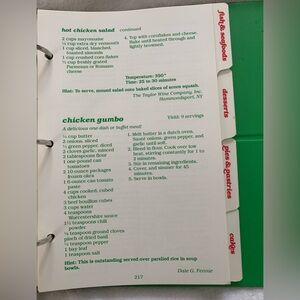 hot chicken salad continued
2 cups mayonnaise
½ cup extra dry vermouth
1 cup sliced, blanched,
toasted almonds
1 cup crushed corn flakes
½ cup freshly grated
Parmesan or Romano
cheese
4. Top with cornflakes and cheese.
Bake until heated through and
lightly browned.
Temperature: 350°
Time: 25 to 30 minutes
Hint: To serve, mound salad onto baked slices of acorn squash.
The Taylor Wine Company, Inc.
Hammondsport, NY
chicken gumbo
Yield: 9 servings
A delicious one dish or buffet meal!
¼ cup butter
2 onions, sliced
½ green pepper, diced
2 cloves garlic, minced
2 tablespoons flour
1 one-pound can
tomatoes
2 10-ounce packages
frozen okra
1 6-ounce can tomato
paste
4 cups cooked, cubed
chicken
3 beef bouillon cubes
3 cups water
4 teaspoons
Worcestershire sauce
½ teaspoons chili
powder
teaspoon ground cloves
pinch of dried basil
teaspoon pepper
1 bay leaf
1 teaspoon salt
1. Melt butter in a dutch oven.
Sauté onions, green pepper,
and garlic until soft.
2. Blend in flour. Cook over low
heat, stirring constantly for 1 to
2 minutes.
3. Stir in remaining ingredients.
4. Cover, and simmer for 45
minutes.
5. Serve in bowls.
Hint: This is outstanding served over parslied rice in soup
bowls.
Dale G. Fennie
217
fish & seafoods
desserts
pies & pastries
cakes